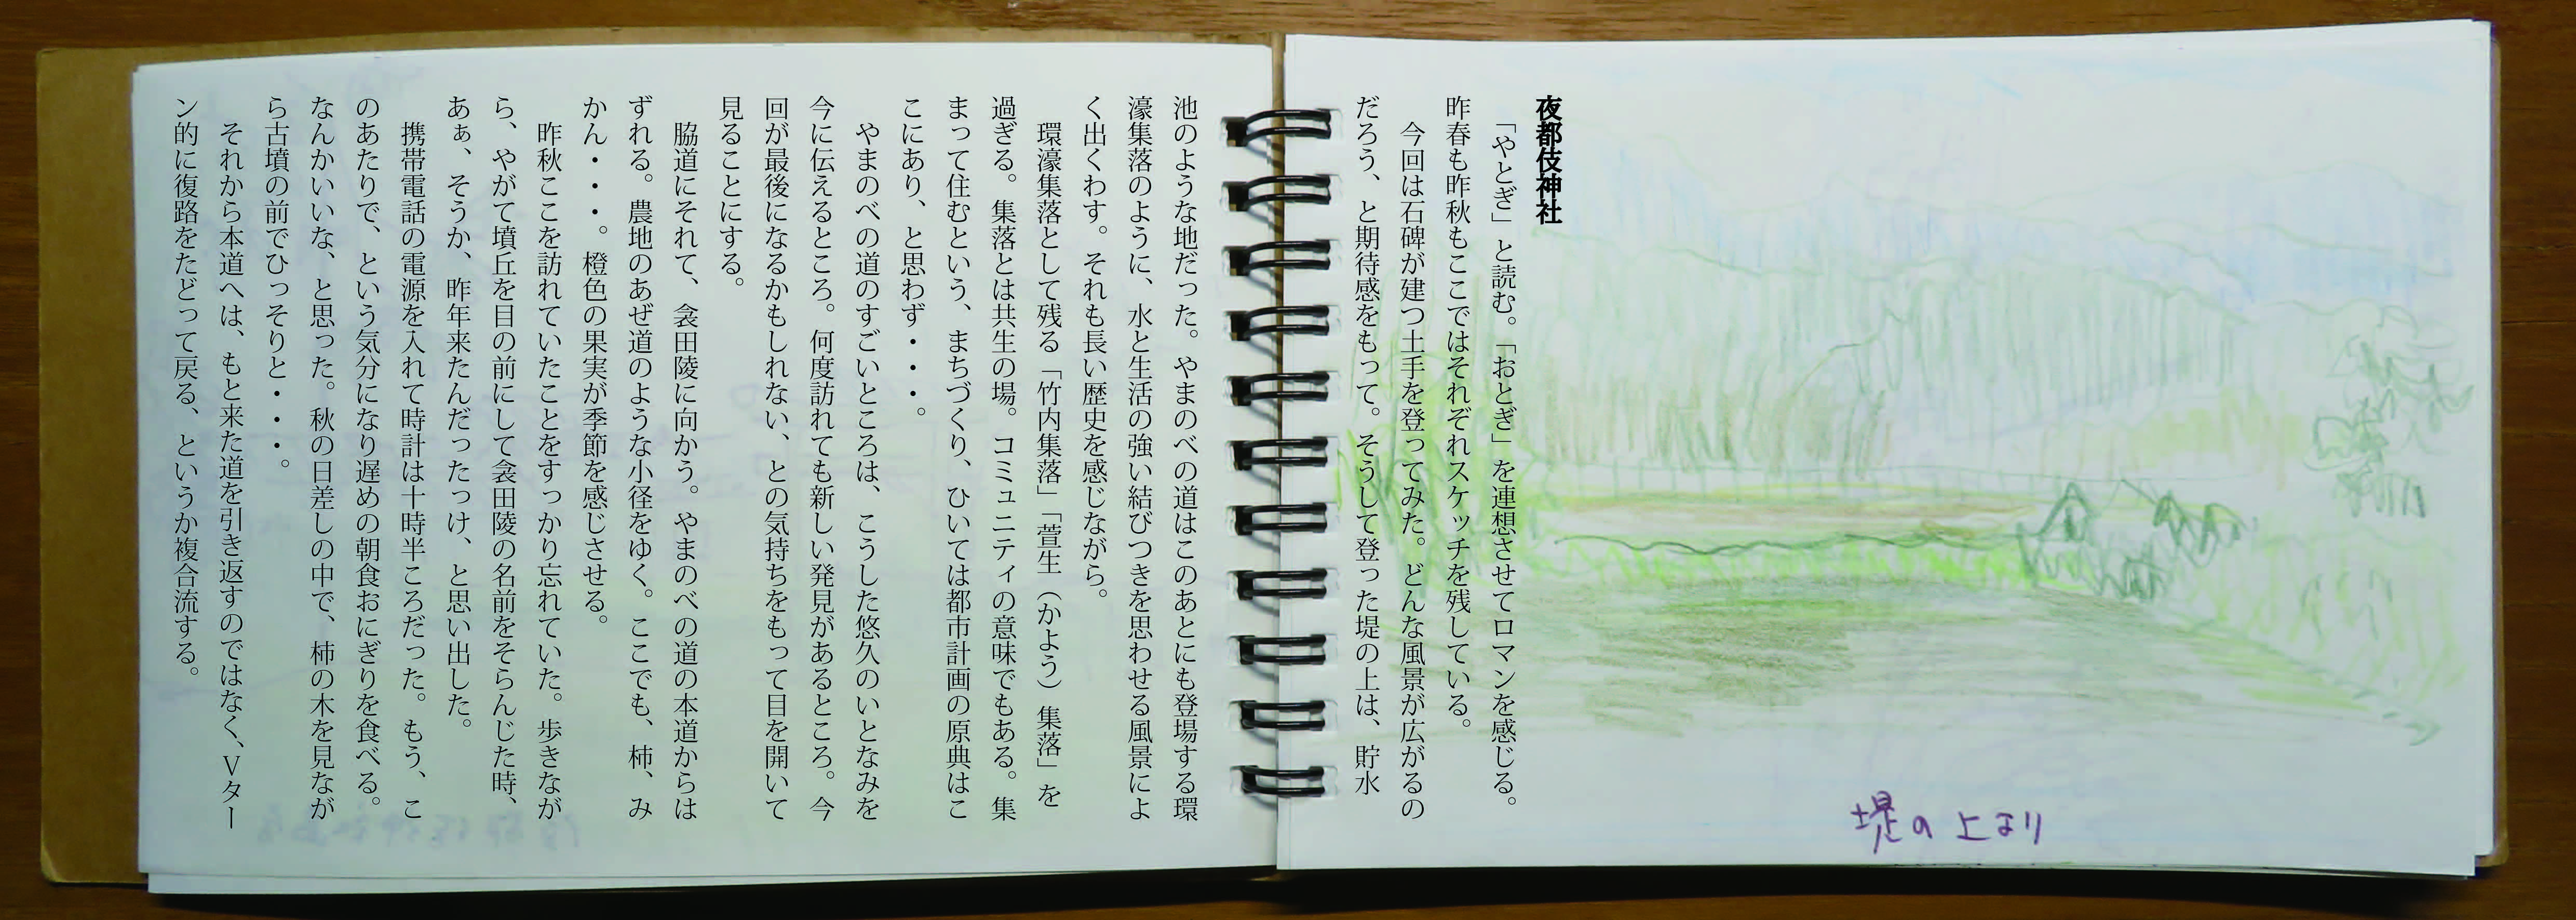 夜都伎神社
「やとぎ」と読む。「おとぎ」を連想させてロマンを感じる。
昨春も昨秋もここではそれぞれスケッチを残している。
今回は石碑が建つ土手を登ってみた。どんな風景が広がるの
だろう、と期待感をもって。そうして登った堤の上は、貯水
池のような地だった。やまのべの道はこのあとにも登場する環
濠集落のように、水と生活の強い結びつきを思わせる風景によ
く出くわす。それも長い歴史を感じながら。
環濠集落として残る「竹内集落」「萱生（かよう）集落」を
過ぎる。集落とは共生の場。コミュニティの意味でもある。集
まって住むという、まちづくり、ひいては都市計画の原典はこ
こにあり、と思わず・・・。
やまのべの道のすごいところは、こうした悠久のいとなみを
今に伝えるところ。何度訪れても新しい発見があるところ。今
回が最後になるかもしれない、との気持ちをもって目を開いて
見ることにする。
脇道にそれて、衾田陵に向かう。やまのべの道の本道からは
ずれる。農地のあぜ道のような小径をゆく。ここでも、柿、み
かん・・・。橙色の果実が季節を感じさせる。
昨秋ここを訪れていたことをすっかり忘れていた。歩きなが
ら、やがて墳丘を目の前にして衾田陵の名前をそらんじた時、
あぁ、そうか、昨年来たんだったっけ、と思い出した。
携帯電話の電源を入れて時計は十時半ころだった。もう、こ
のあたりで、という気分になり遅めの朝食おにぎりを食べる。
なんかいいな、と思った。秋の日差しの中で、柿の木を見なが
ら古墳の前でひっそりと・・・。
それから本道へは、もと来た道を引き返すのではなく、Ｖター
ン的に復路をたどって戻る、というか複合流する。
堤の上より